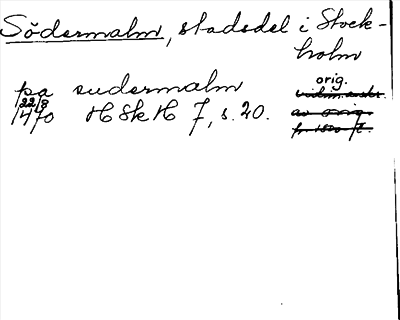 Södermalm, stadsdel i Stock-
holm
pa sudermalm orig.
22/8
1470 HSkH 7, s. 20.
av orig.
fr. 1500-t.